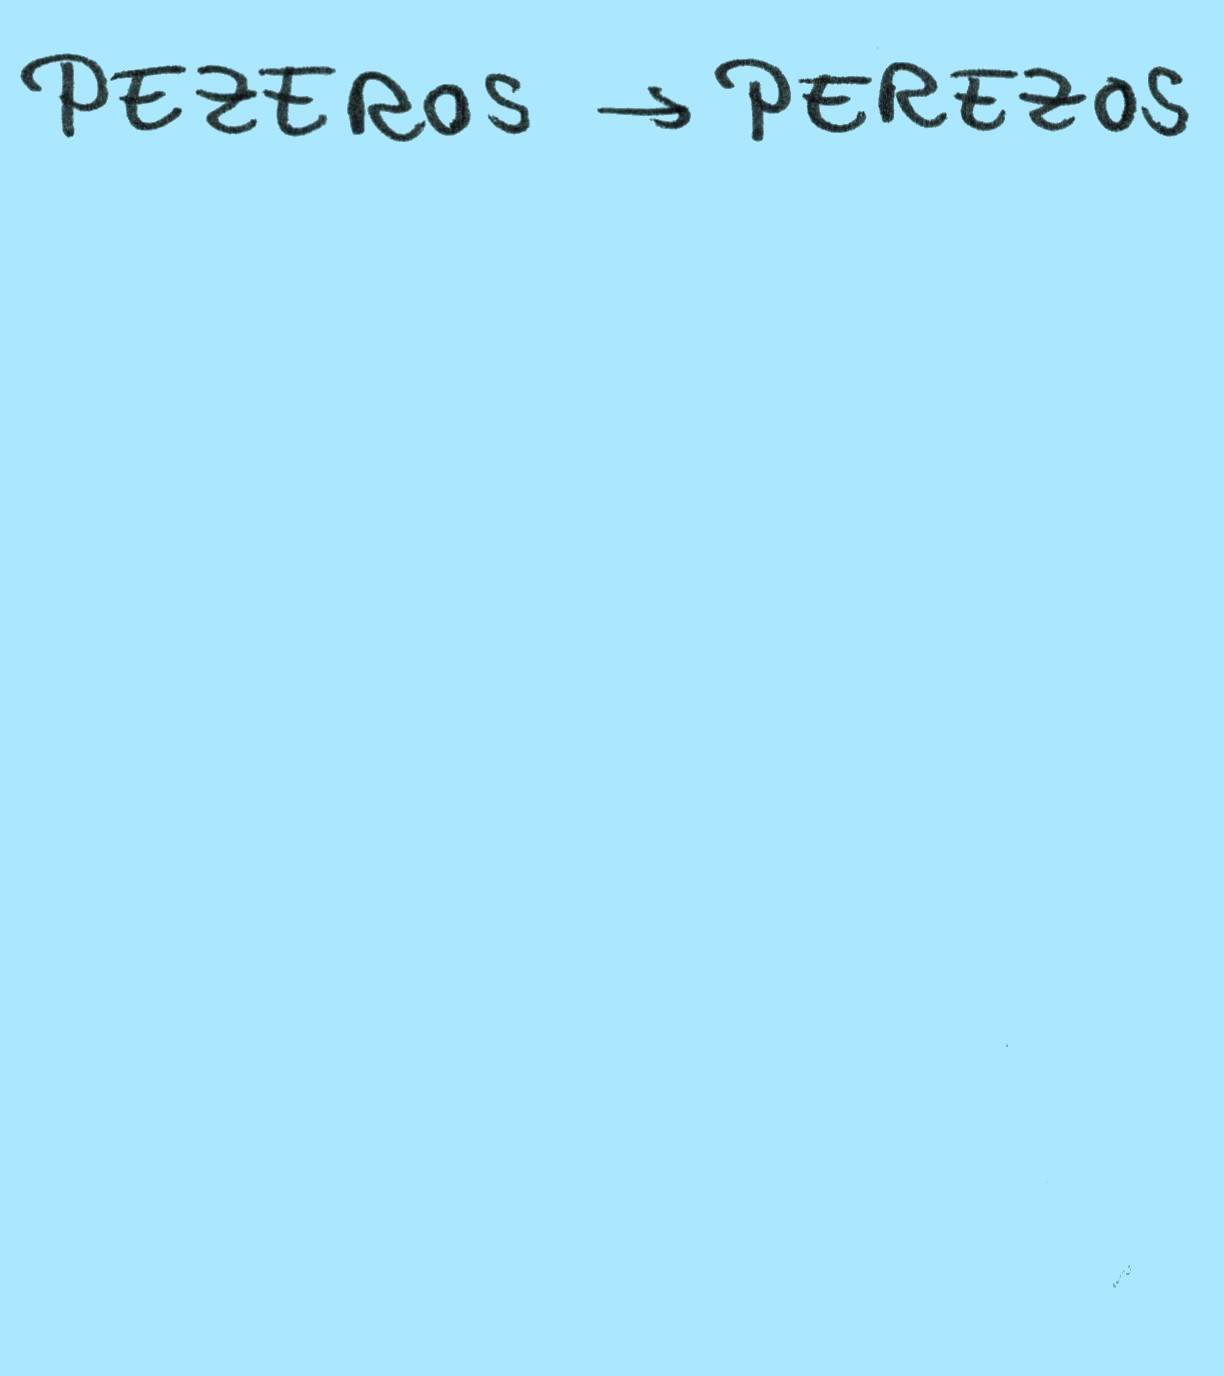 PEZEROS → PEREZOS